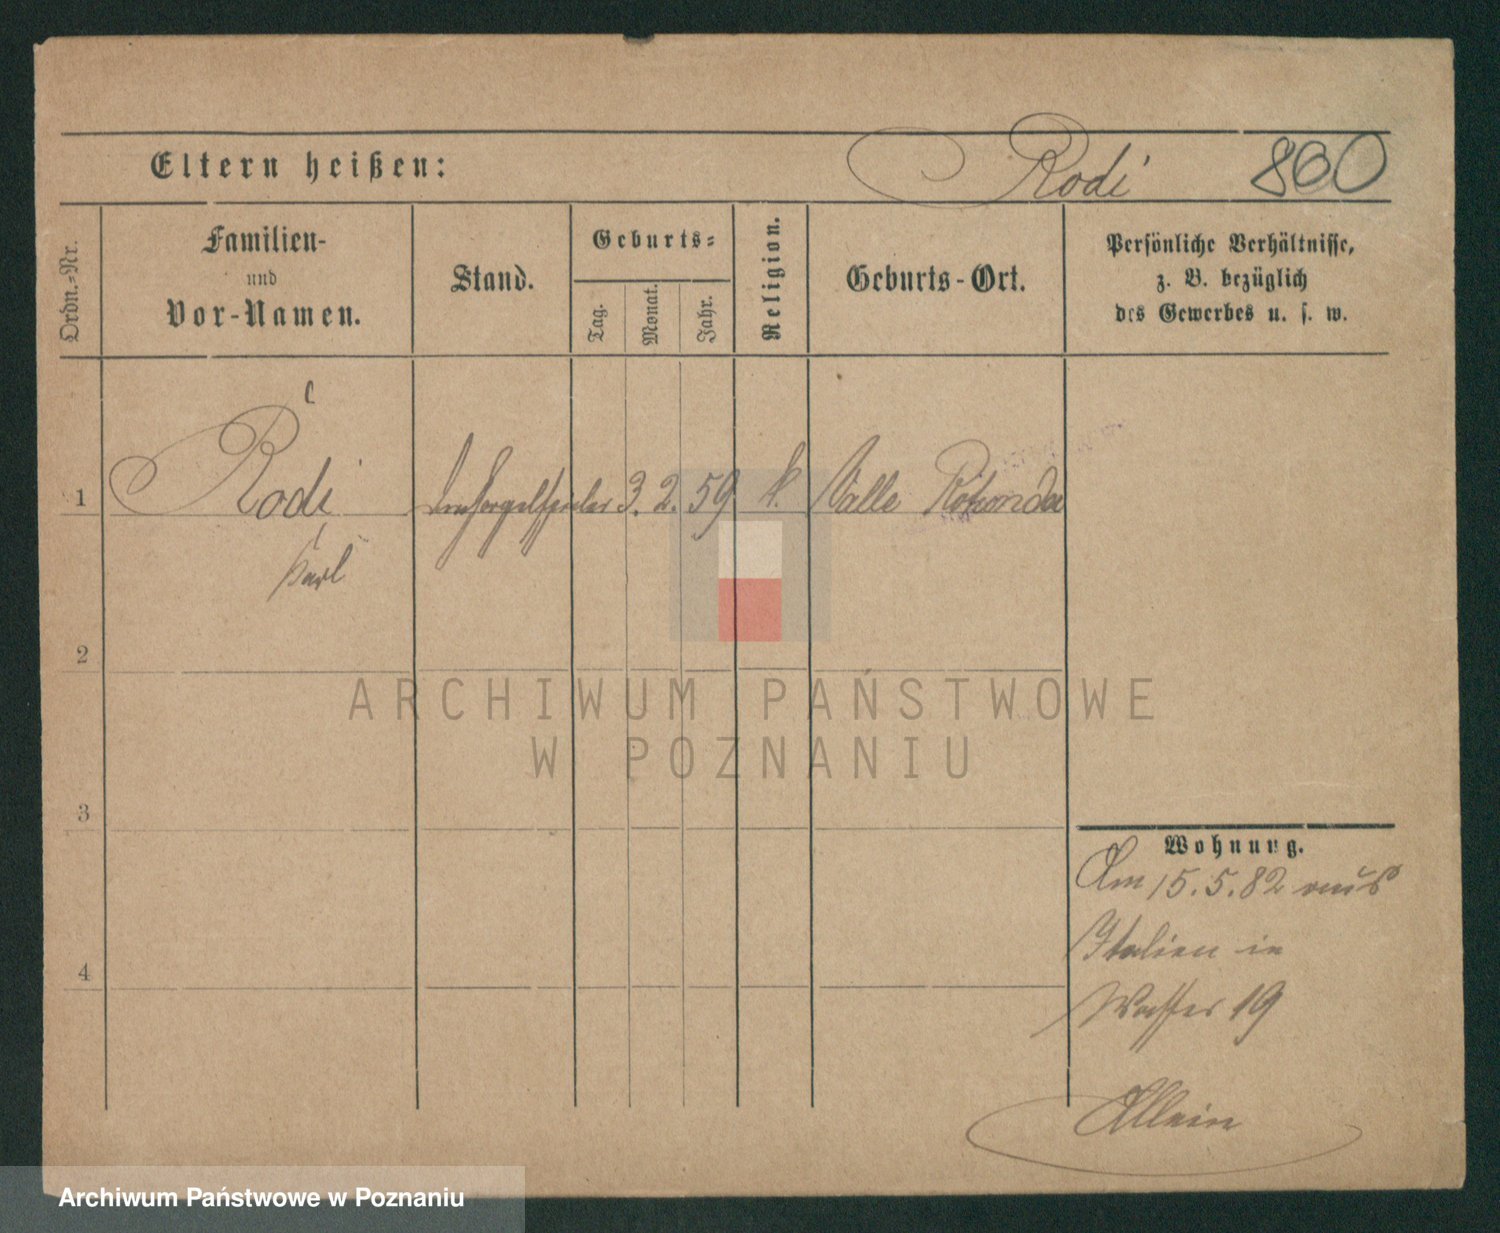 Eltern heißen: Rodi 860
Ordn.-Nr.
Familien-
und
Vor-Namen.
Stand.
Geburts-
Tag.
Monat.
Jahr.
Religion.
Geburts-Ort.
Persönliche Verhältnisse,
z. B. bezüglich
des Gewerbes u. s. w.
1 Rodi 3. 2. 59 k. Valle Rotonda
Karl
2
3
4
Wohnung.
Am 15.5.82 aus
Italien in
Wasser 19
Allein
ARCHIWUM PAŃSTWOWE
W POZNANIU
Archiwum Państwowe w Poznaniu